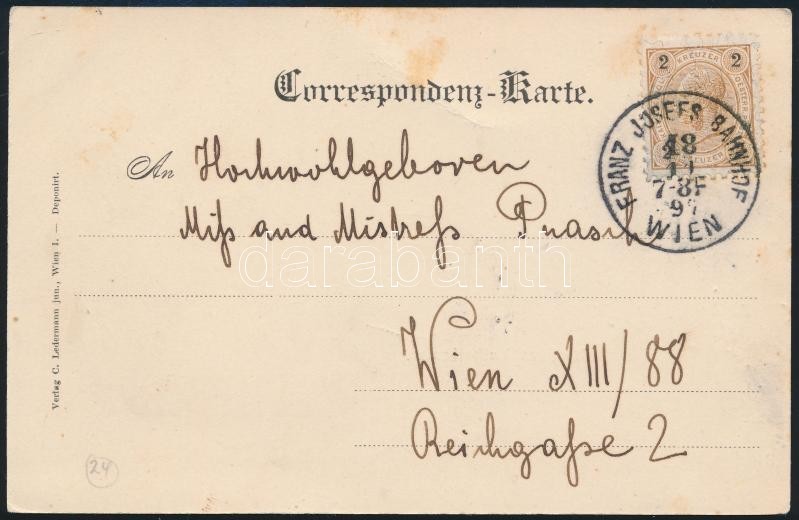 Correspondenz-Karte.
2 KREUZER 2
FRANZ JOSEFS BAHNHOF
18
11
7-8F
97
WIEN
An Hochwohlgeboren
Miſs and Miſtreſs Prasch
Wien XIII/88
Reichgaſse 2
Verlag C. Ledermann jun., Wien I. — Deponirt.
24
darabanth
https://www.darabanth.com/